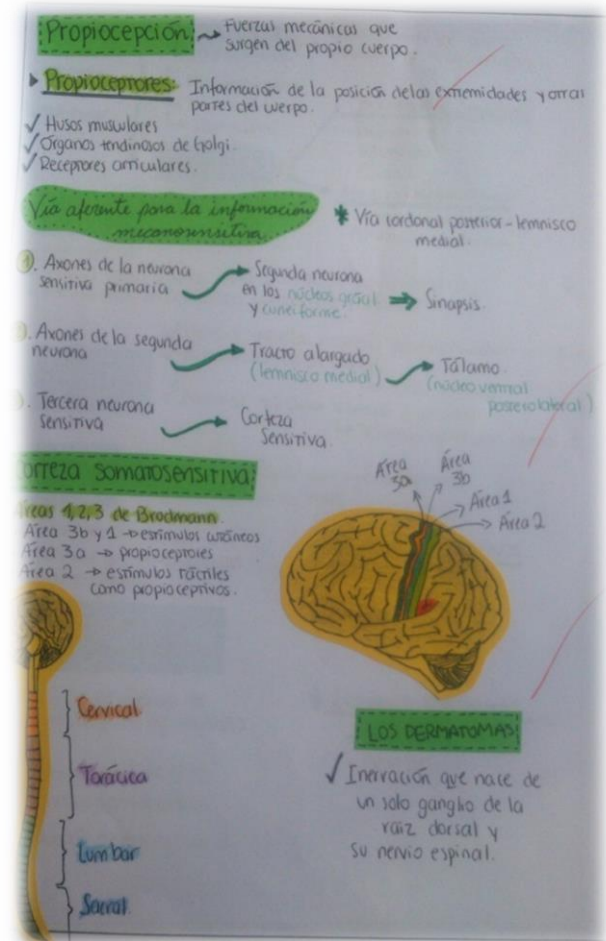 Propiocepción
Fuerzas mecánicas que
surgen del propio cuerpo.
Propioceptores:
Información de la posición de las extremidades y otras
partes del cuerpo.
✓ Husos musculares
✓ Órganos tendinosos de Golgi.
✓ Receptores articulares.
Vía aferente para la información
mecanosensitiva
* Vía cordonal posterior - lemnisco
medial.
1. Axones de la neurona
sensitiva primaria
Segunda neurona
en los núcleos grácil
y cuneiforme.
Sinapsis.
). Axones de la segunda
neurona
Tracto alargado
(lemnisco medial)
Tálamo.
(núcleo ventral
posterolateral)
). Tercera neurona
sensitiva
Corteza
Sensitiva.
orteza somatosensitiva:
Áreas 1,2,3 de Brodmann.
Área 3b y 1 → estímulos cutáneos
Área 3a → propioceptores
Área 2 → estímulos táctiles
como propioceptivos.
Área
3a
Área
3b
Área 1
Área 2
Cervical.
Torácica
Lumbar
Sacral.
LOS DERMATOMAS:
✓ Inervación que nace de
un solo ganglio de la
raíz dorsal y
su nervio espinal.